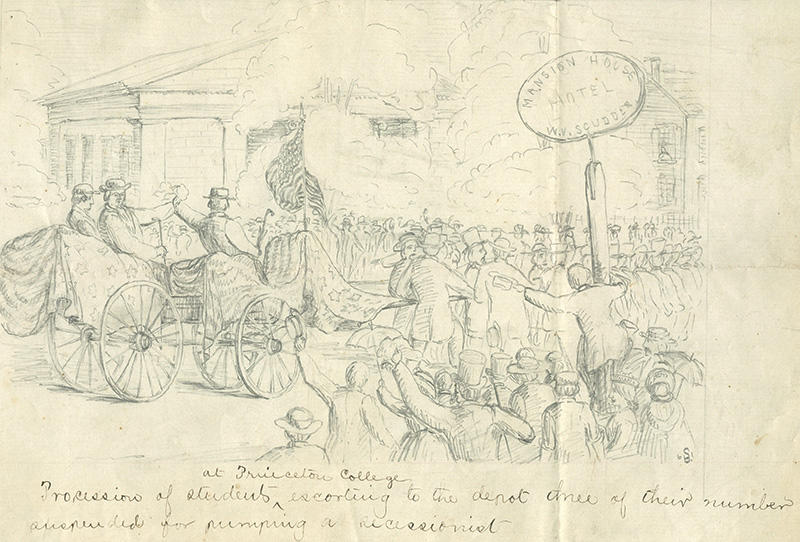 MANSION HOUSE
HOTEL
W.V. SCUDDER
at Princeton College
Procession of students ^ escorting to the depot three of their number
suspended for pumping a secessionist